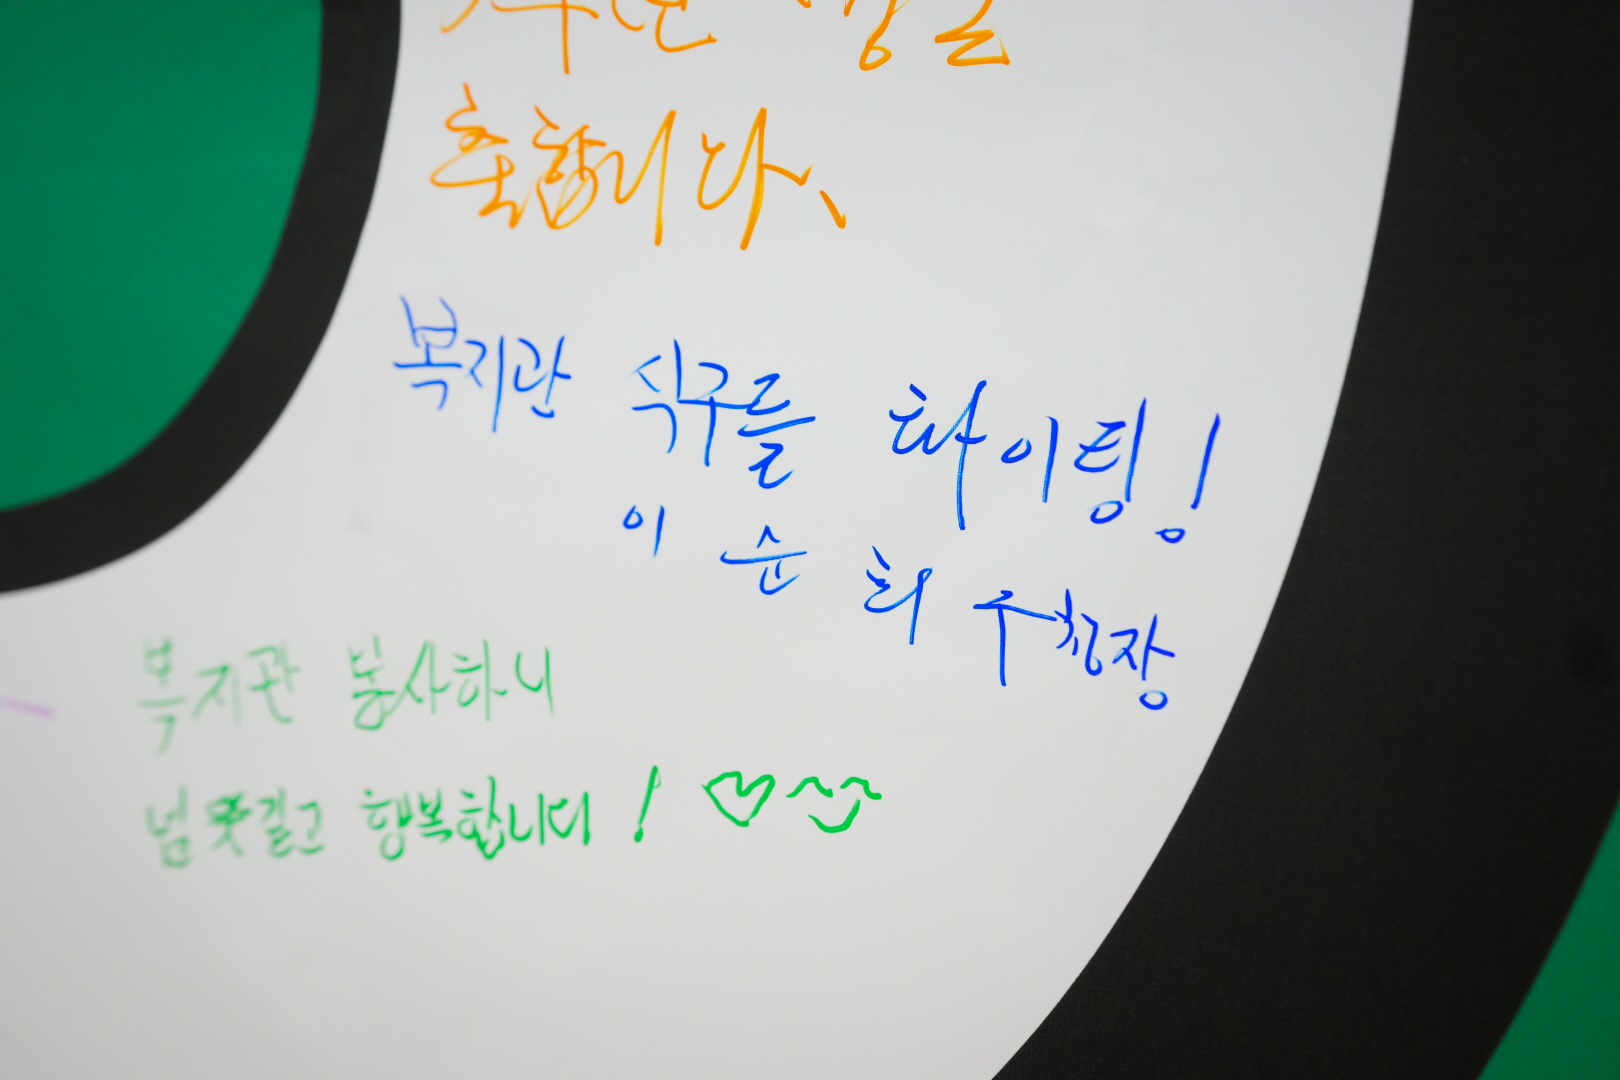 축합니다.
복지관 식구들 화이팅!
이순희 구청장
복지관 봉사하니
넘 뜻깊고 행복합니다!